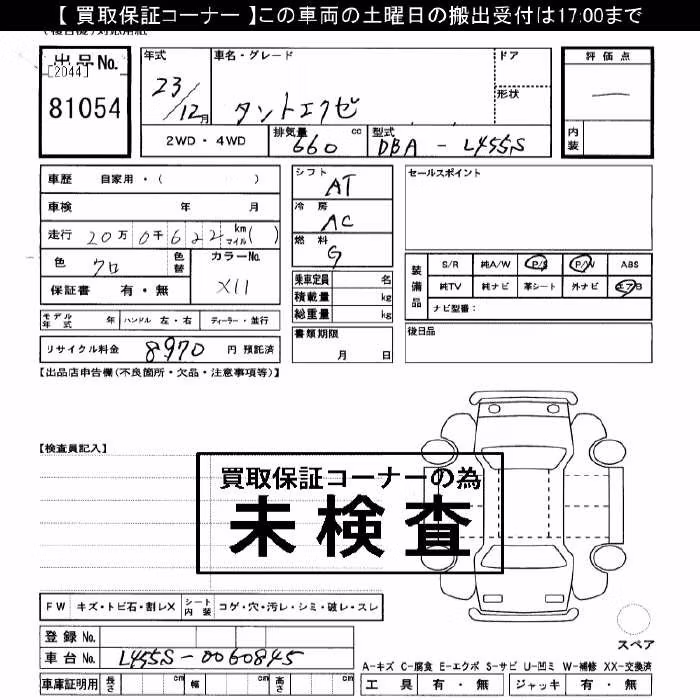 【 買取保証コーナー 】この車両の土曜日の搬出受付は17:00まで
出品No.
[2044]
81054
年式
23/12月
車名・グレード
タントエクゼ
ドア
形状
評価点
—
内装
2WD・4WD
排気量
660 cc
型式
DBA - L455S
車歴 自家用・( )
車検 年 月
走行 20万0千622 km マイル( )
色 クロ
色替
カラーNo.
X11
保証書 有・無
モデル年式 年 ハンドル 左・右 ディーラー・並行
リサイクル料金 8970 円 預託済
シフト
AT
冷房
AC
燃料
G
乗車定員 名
積載量 kg
総重量 kg
書類期限
月 日
セールスポイント
装備品
S/R 純A/W P/S P/W ABS
純TV 純ナビ 革シート 外ナビ エアB
ナビ型番:
後日品
【出品店申告欄(不良箇所・欠品・注意事項等)】
【検査員記入】
買取保証コーナーの為
未検査
FW キズ・トビ石・割レX シート内装 コゲ・穴・汚レ・シミ・破レ・スレ
登録No.
車台No. L455S-0060845
車庫証明用 長さ cm 幅 cm 高さ cm
スペア
A-キズ C-腐食 E-エクボ S-サビ U-凹ミ W-補修 XX-交換済
工具 有・無 ジャッキ 有・無